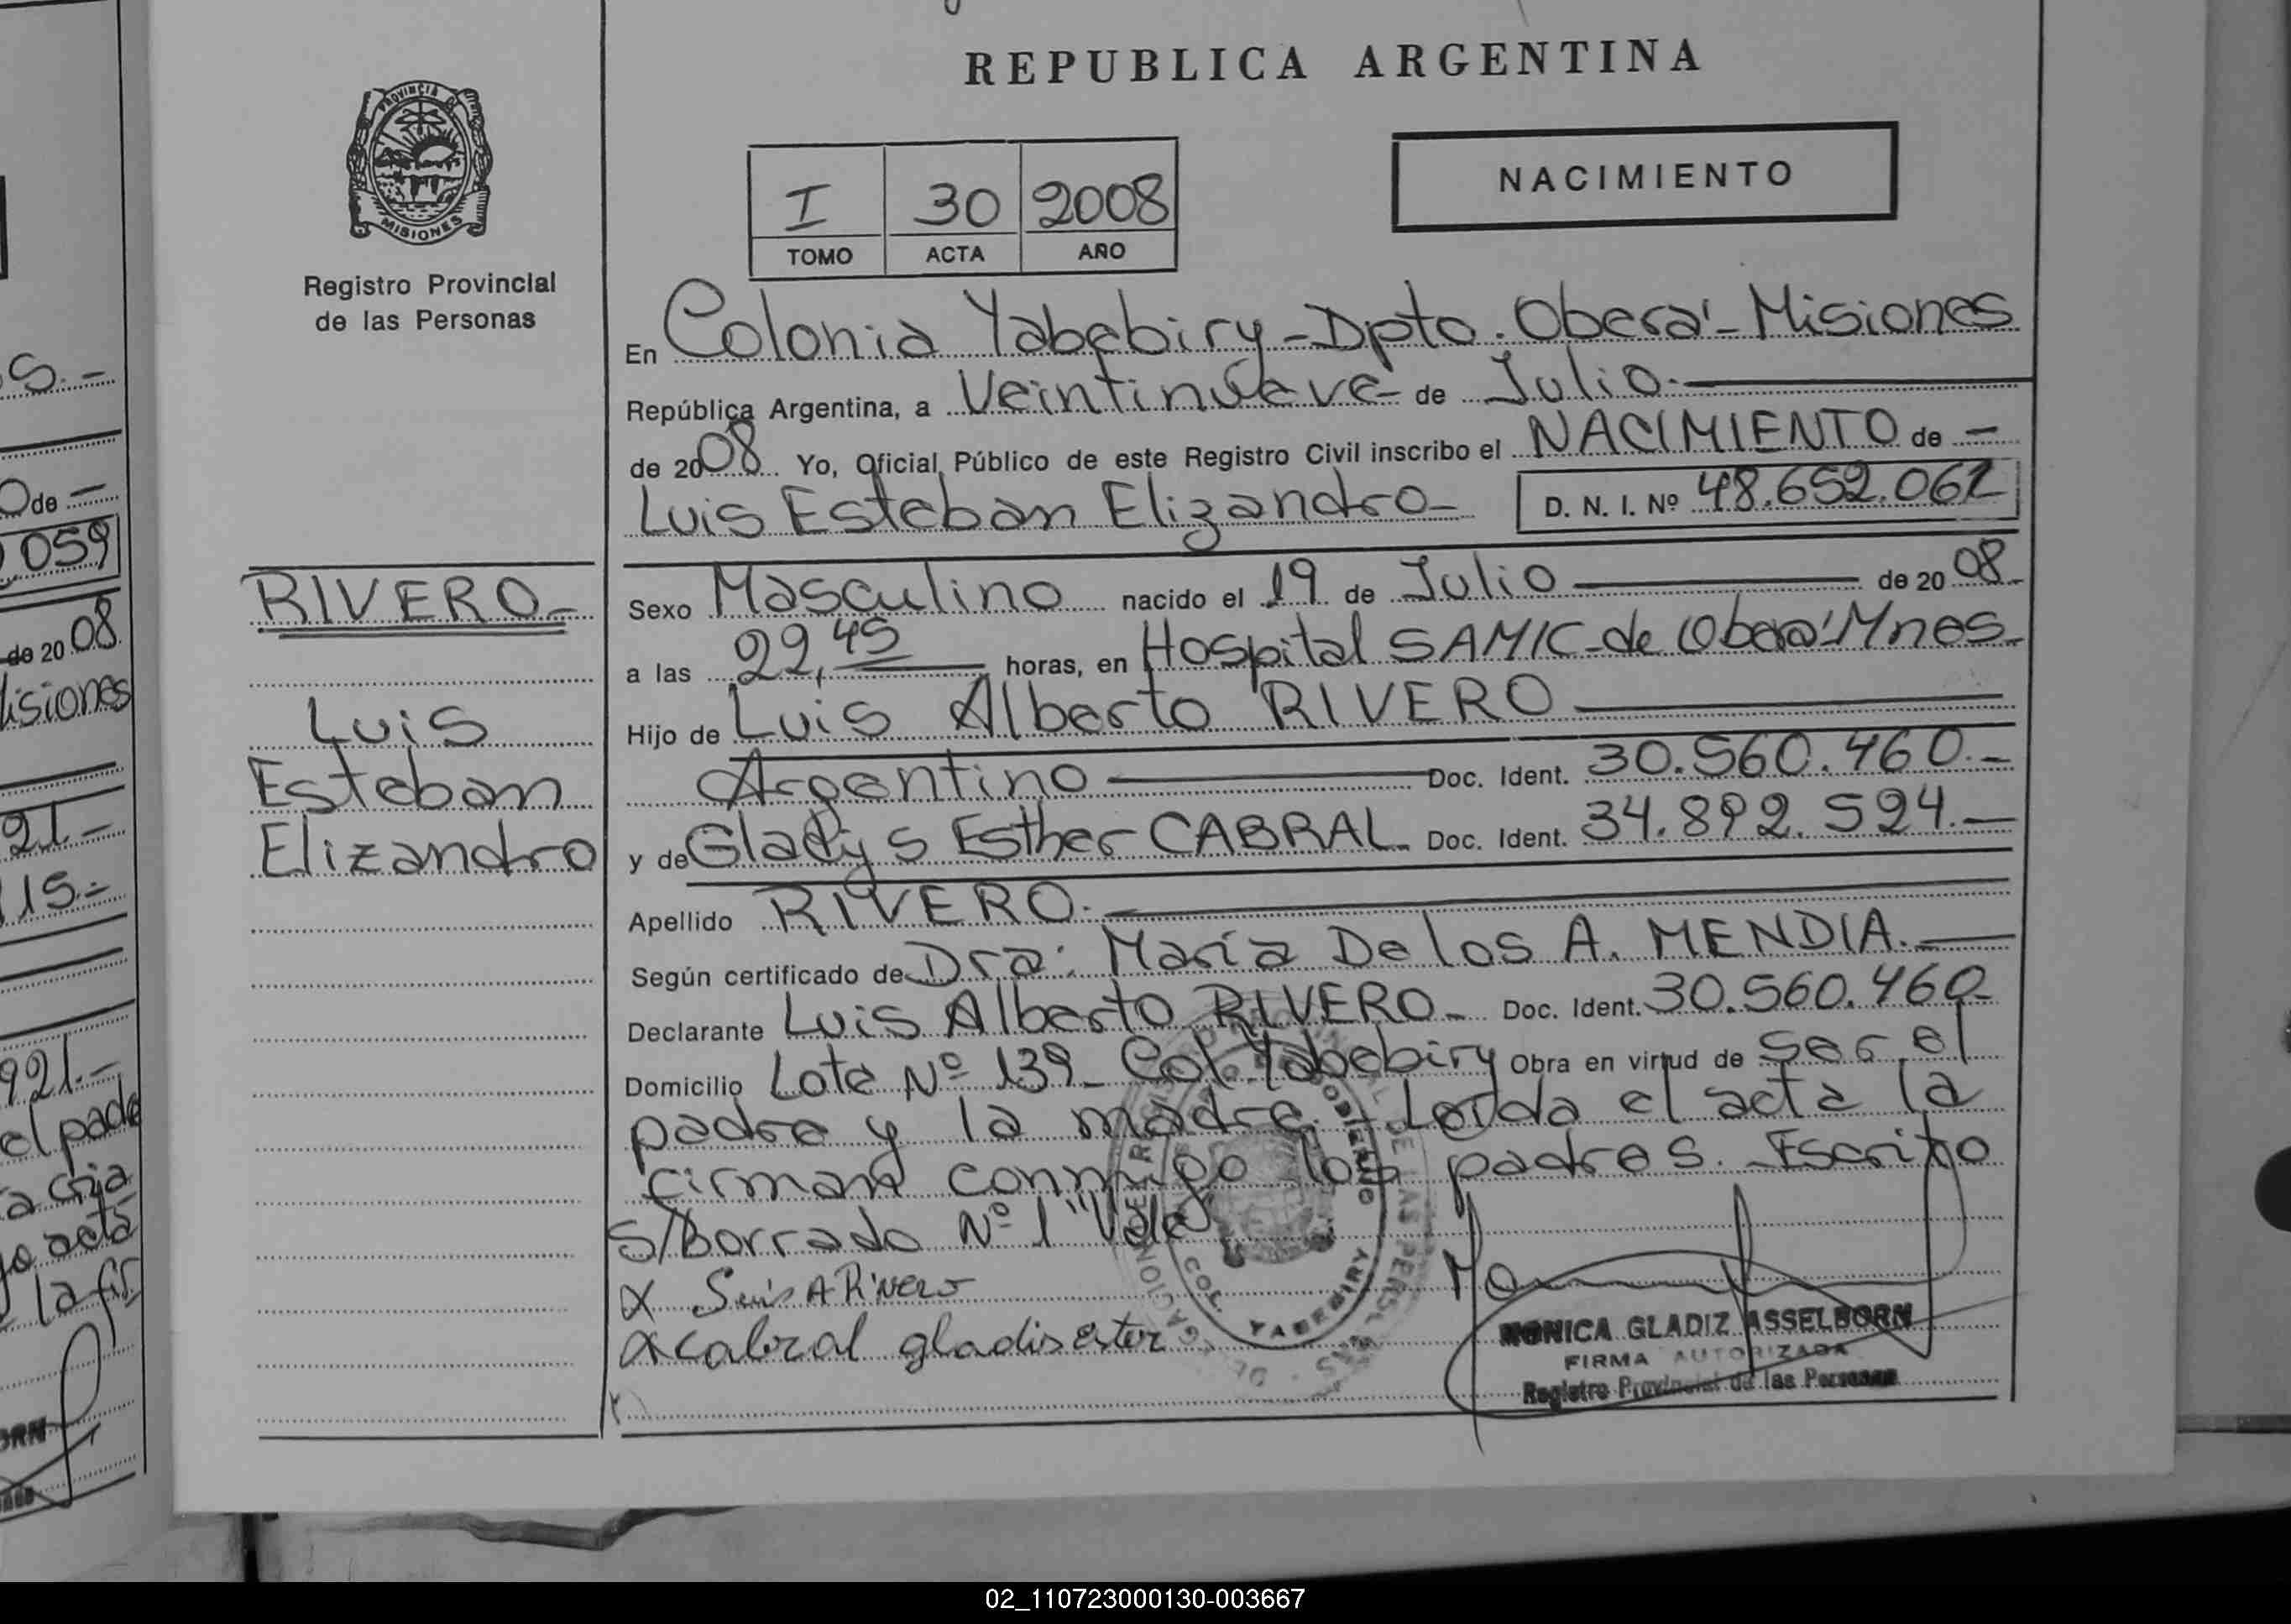 REPUBLICA ARGENTINA
PROVINCIA DE MISIONES
Registro Provincial
de las Personas
I 30 2008
TOMO ACTA AÑO
NACIMIENTO
En Colonia Yabebiry-Dpto. Oberá-Misiones
República Argentina, a Veintinueve- de Julio.-
de 2008 Yo, Oficial Público de este Registro Civil inscribo el NACIMIENTO de -
Luis Esteban Elizandro- D. N. I. Nº 48.652.061
RIVERO-
Luis
Esteban
Elizandro
Sexo Masculino nacido el 19 de Julio de 2008-
a las 22,45 horas, en Hospital SAMIC-de Oberá-Mnes-
Hijo de Luis Alberto RIVERO
Argentino Doc. Ident. 30.560.460.-
y de Gladys Esther CABRAL- Doc. Ident. 34.892.524.-
Apellido RIVERO.-
Según certificado de Dra: María De los A. MENDIA.-
Declarante Luis Alberto RIVERO- Doc. Ident. 30.560.460-
Domicilio Lote Nº 139- Col. Yabebiry Obra en virtud de ser el
padre y la madre.- el acta la
firman conmigo los padres.- Escrito
S/Borrado Nº 1 "Vale"
X Luis A Rivero
X Cabral gladis ester
COL. YABEBIRY
MONICA GLADIZ ASSELBORN
FIRMA AUTORIZADA
Registro Provincial de las Personas
S.-
O de -
059
de 2008.
isiones
21.-
115.-
921.-
el padre
acta
la fir
02_110723000130-003667